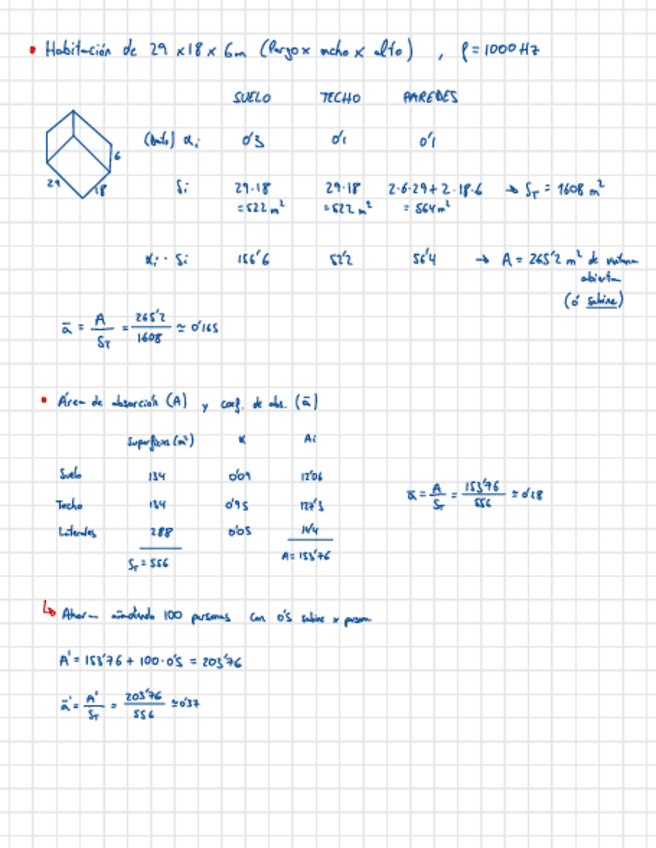 • Habitación de 29 x 18 x 6m (largo x ancho x alto) , f = 1000 Hz
SUELO TECHO PAREDES
αi 0'3 0'1 0'1
6
29
18
Si 29·18 = 522 m² 29·18 = 522 m² 2·6·29 + 2·18·6 = 564 m² → ST = 1608 m²
αi · Si 156'6 52'2 56'4 → A = 265'2 m² de ventana
abierta
(ó sabine)
ā = A/ST = 265'2/1608 ≃ 0'165
• Área de absorción (A) y coef. de abs. (ā)
Superficies (m²) α Ai
Suelo 134 0'09 12'06
Techo 134 0'95 127'3
Laterales 288 0'05 14'4
ST = 556 A = 153'76
ā = A/ST = 153'76/556 ≃ 0'28
↳ Ahora añadiendo 100 personas con 0'5 sabine x persona
A' = 153'76 + 100·0'5 = 203'76
ā' = A'/ST = 203'76/556 ≃ 0'37